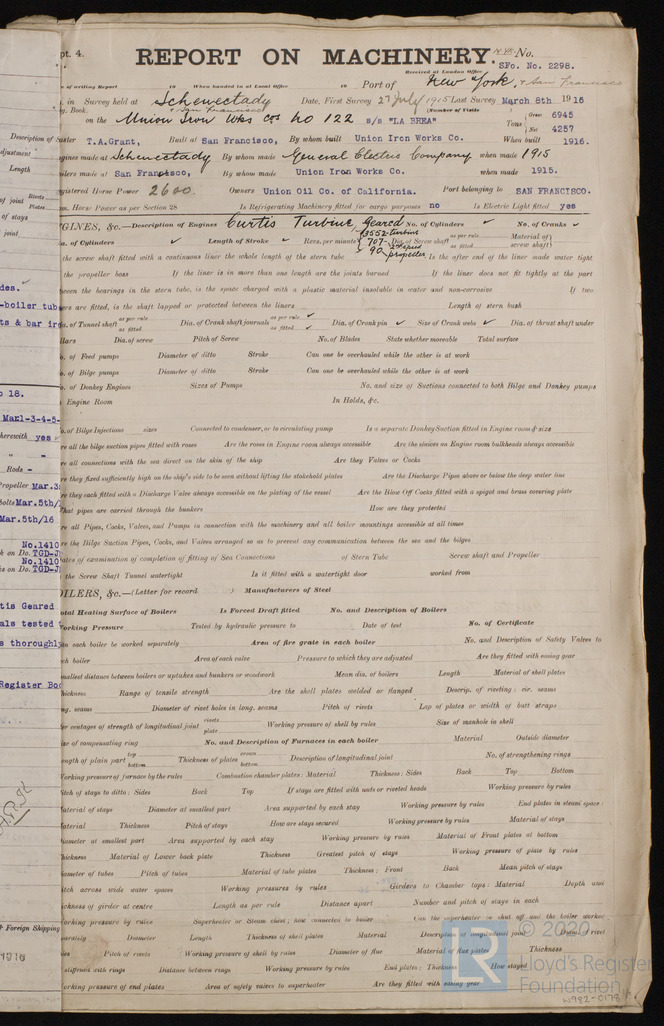 pt. 4.
REPORT ON MACHINERY. No.
SFo. No. 2298.
Received at London Office
of writing Report 19 When handed in at Local Office 19 Port of New York, & San Francisco
in Survey held at Schenectady Date, First Survey 27 July 1915 Last Survey March 8th 1916
& San Francisco
g. Book. (Number of Visits
on the Union Iron Wks Cos No 122 s/s "LA BREA" Tons Gross 6945
Net 4257
Master T.A.Grant, Built at San Francisco, By whom built Union Iron Works Co. When built 1916.
gines made at Schenectady By whom made General Electric Company when made 1915
ilers made at San Francisco, By whom made Union Iron Works Co. when made 1915.
gistered Horse Power 2600 Owners Union Oil Co. of California. Port belonging to SAN FRANCISCO.
m. Horse Power as per Section 28 Is Refrigerating Machinery fitted for cargo purposes no Is Electric Light fitted yes
GINES, &c.—Description of Engines Curtis Turbine Geared No. of Cylinders ✓ No. of Cranks ✓
a. of Cylinders ✓ Length of Stroke ✓ Revs. per minute 3552 turbine 707 2nd speed 90 propeller Dia. of Screw shaft as per rule as fitted Material of screw shaft
the screw shaft fitted with a continuous liner the whole length of the stern tube Is the after end of the liner made water tight
the propeller boss If the liner is in more than one length are the joints burned If the liner does not fit tightly at the part
tween the bearings in the stern tube, is the space charged with a plastic material insoluble in water and non-corrosive If two
ers are fitted, is the shaft lapped or protected between the liners Length of stern bush
a. of Tunnel shaft as per rule as fitted Dia. of Crank shaft journals as per rule ✓ as fitted ✓ Dia. of Crank pin ✓ Size of Crank webs ✓ Dia. of thrust shaft under
llars Dia. of screw Pitch of Screw No. of Blades State whether moveable Total surface
o. of Feed pumps Diameter of ditto Stroke Can one be overhauled while the other is at work
o. of Bilge pumps Diameter of ditto Stroke Can one be overhauled while the other is at work
o. of Donkey Engines Sizes of Pumps No. and size of Suctions connected to both Bilge and Donkey pumps
Engine Room In Holds, &c.
o. of Bilge Injections sizes Connected to condenser, or to circulating pump Is a separate Donkey Suction fitted in Engine room & size
re all the bilge suction pipes fitted with roses Are the roses in Engine room always accessible Are the sluices on Engine room bulkheads always accessible
re all connections with the sea direct on the skin of the ship Are they Valves or Cocks
re they fixed sufficiently high on the ship's side to be seen without lifting the stokehold plates Are the Discharge Pipes above or below the deep water line
re they each fitted with a Discharge Valve always accessible on the plating of the vessel Are the Blow Off Cocks fitted with a spigot and brass covering plate
hat pipes are carried through the bunkers How are they protected
re all Pipes, Cocks, Valves, and Pumps in connection with the machinery and all boiler mountings accessible at all times
re the Bilge Suction Pipes, Cocks, and Valves arranged so as to prevent any communication between the sea and the bilges
ates of examination of completion of fitting of Sea Connections of Stern Tube Screw shaft and Propeller
the Screw Shaft Tunnel watertight Is it fitted with a watertight door worked from
OILERS, &c.—(Letter for record ) Manufacturers of Steel
otal Heating Surface of Boilers Is Forced Draft fitted No. and Description of Boilers
orking Pressure Tested by hydraulic pressure to Date of test No. of Certificate
an each boiler be worked separately Area of fire grate in each boiler No. and Description of Safety Valves to
ch boiler Area of each valve Pressure to which they are adjusted Are they fitted with easing gear
mallest distance between boilers or uptakes and bunkers or woodwork Mean dia. of boilers Length Material of shell plates
hickness Range of tensile strength Are the shell plates welded or flanged Descrip. of riveting : cir. seams
ng. seams Diameter of rivet holes in long. seams Pitch of rivets Lap of plates or width of butt straps
er centages of strength of longitudinal joint rivets plate Working pressure of shell by rules Size of manhole in shell
ize of compensating ring No. and Description of Furnaces in each boiler Material Outside diameter
ength of plain part top bottom Thickness of plates crown bottom Description of longitudinal joint No. of strengthening rings
Working pressure of furnace by the rules Combustion chamber plates : Material Thickness : Sides Back Top Bottom
itch of stays to ditto : Sides Back Top If stays are fitted with nuts or riveted heads Working pressure by rules
aterial of stays Diameter at smallest part Area supported by each stay Working pressure by rules End plates in steam space :
aterial Thickness Pitch of stays How are stays secured Working pressure by rules Material of stays
iameter at smallest part Area supported by each stay Working pressure by rules Material of Front plates at bottom
hickness Material of Lower back plate Thickness Greatest pitch of stays Working pressure of plate by rules
iameter of tubes Pitch of tubes Material of tube plates Thickness : Front Back Mean pitch of stays
itch across wide water spaces Working pressures by rules Girders to Chamber tops : Material Depth and
ickness of girder at centre Length as per rule Distance apart Number and pitch of stays in each
orking pressure by rules Superheater or Steam chest ; how connected to boiler Can the superheater be shut off and the boiler worked
parately Diameter Length Thickness of shell plates Material Description of longitudinal joint Diam. of rivet
les Pitch of rivets Working pressure of shell by rules Diameter of flue Material of flue plates Thickness
stiffened with rings Distance between rings Working pressure by rules End plates : Thickness How stayed
orking pressure of end plates Area of safety valves to superheater Are they fitted with easing gear
Description of
adjustment
Length
of joint Rivets Plates
of stays
joint
des.
-boiler tub
ts & bar iro
18.
Mar1-3-4-5-
herewith yes
" "
Rods -
Propeller Mar.3
bolts Mar.5th/
Mar.5th/16
No.1410
k on Do. TGD-J
No.1410
s on Do. TGD-J
tis Geared
als tested
s thoroughl
Register Boo
& Foreign Shipping
1916
© 2020
Lloyd's Register
Foundation
W982-0178